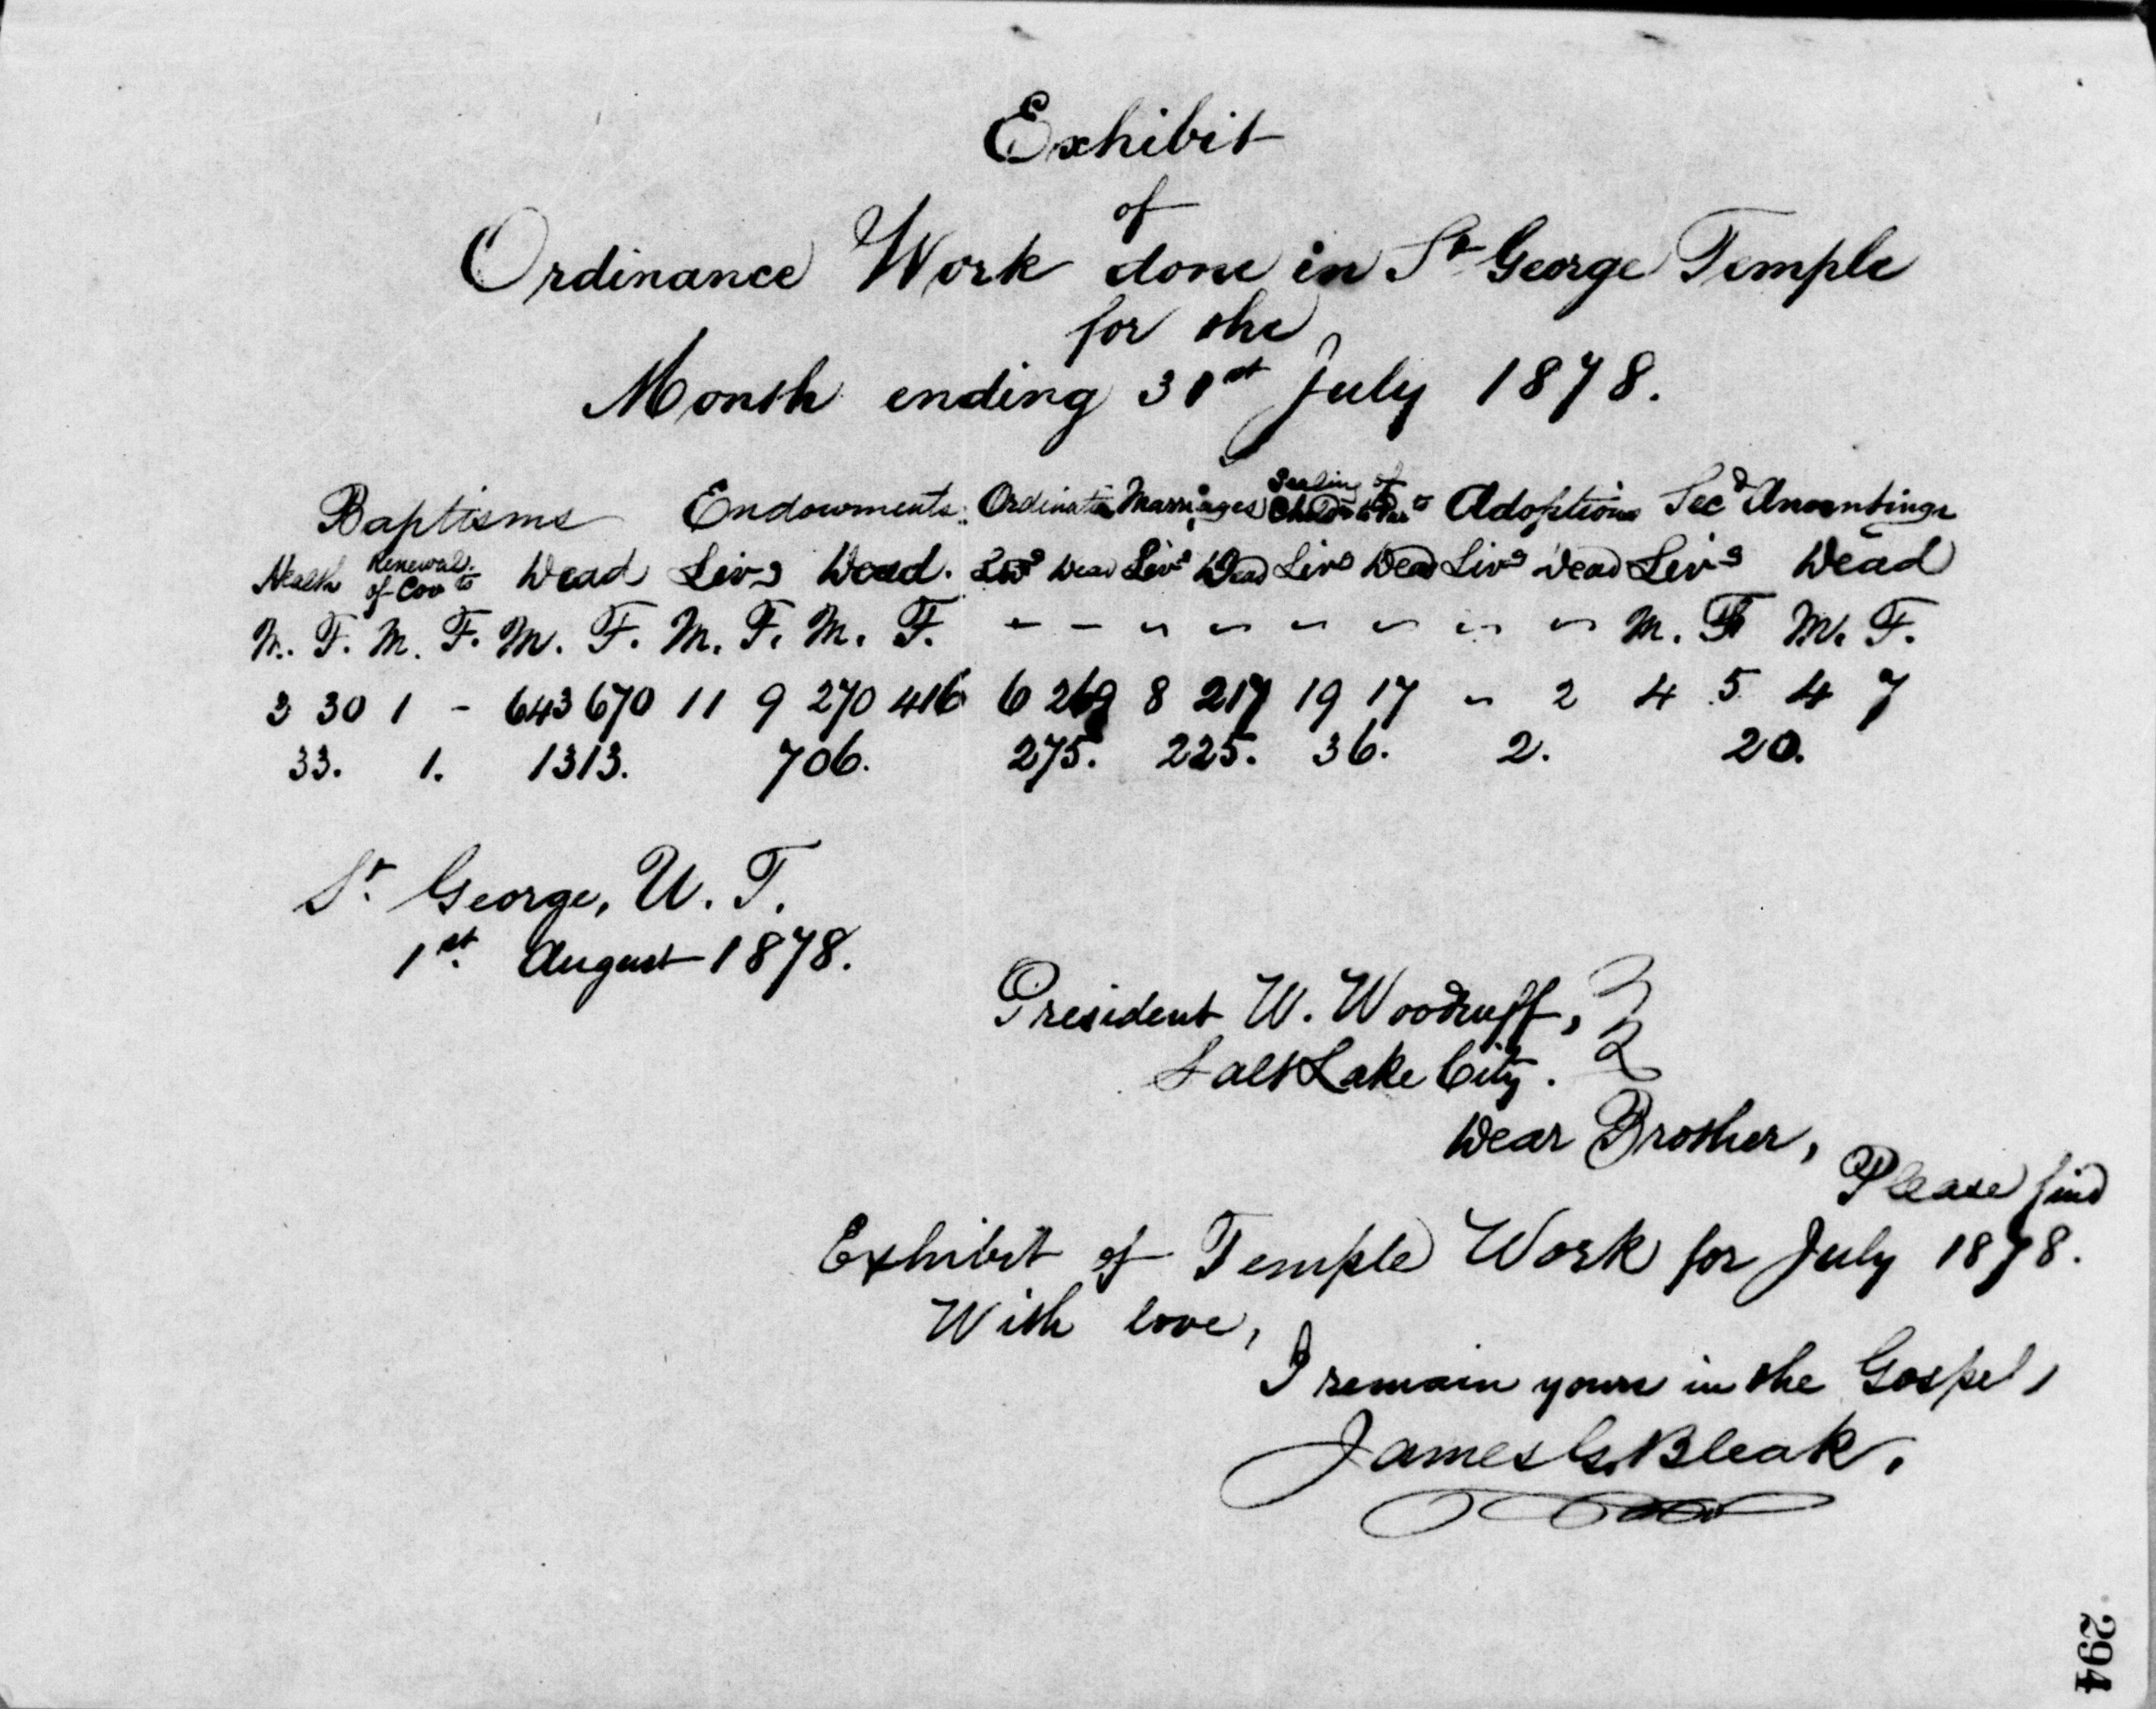 Exhibit
of
Ordinance Work done in St George Temple
for the
Month ending 31st July 1878.
Baptisms Endowments. Ordinatn Marriages Sealing of Childn to Parts Adoptions Secd Anointings
Health Renewal of Covts Dead Livg Dead. Livg Dead Livg Dead Livg Dead Livg Dead Livg Dead
M. F. M. F. M. F. M. F. M. F. - - - - - - - - M. F. M. F.
3 30 1 - 643 670 11 9 270 416 6 269 8 217 19 17 - 2 4 5 4 7
33. 1. 1313. 706. 275. 225. 36. 2. 20.
St. George, U. T.
1st. August 1878.
President W. Woodruff,
Salt Lake City.
Dear Brother,
Please find
Exhibit of Temple Work for July 1878.
With love,
I remain yours in the Gospel,
James G. Bleak.
294